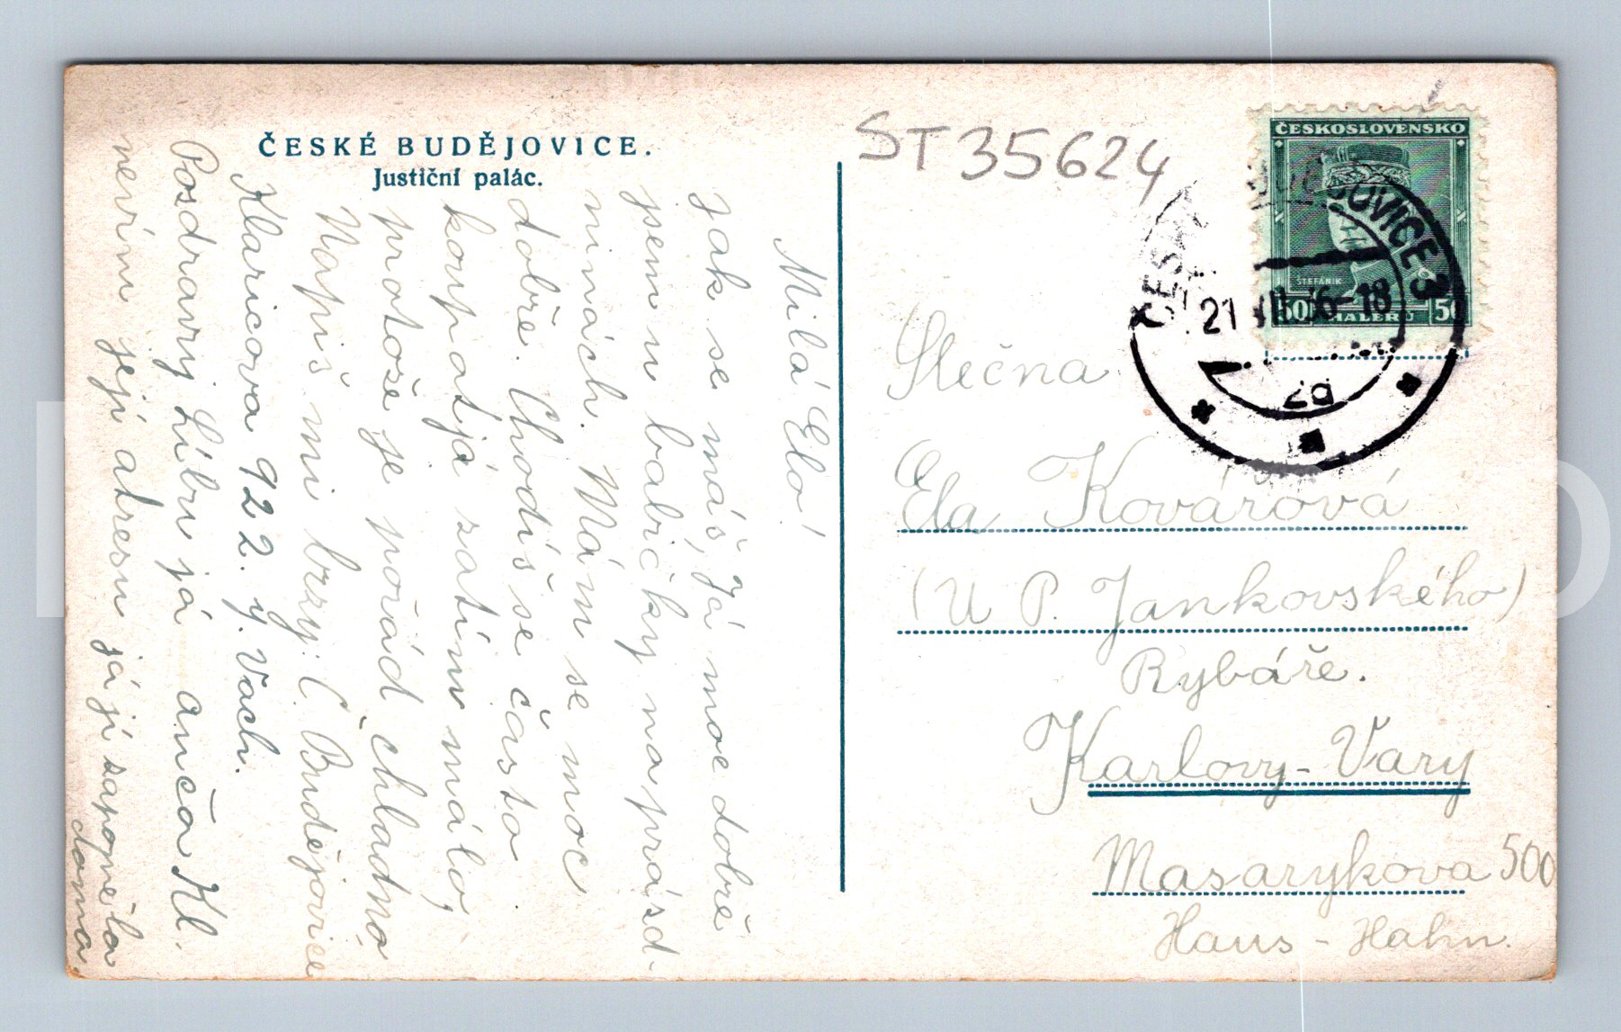 ČESKÉ BUDĚJOVICE.
Justiční palác.
Milá Elo!
Jak se máš, Já moc dobře
jsem u babičky na prásd-
ninách. Mám se moc
dobře. Chodíš se často
koupat já zatím málo,
protože je pořád chladno,
Napiš mi brzy: Č Budějovice
Klaricova 922. y. Vach.
Posdravuj Líbu já anča Kl.
nevím její adresu já jí sapoměla
doma
ST 35624
ČESKOSLOVENSKO
ŠTEFÁNIK
50 HALERŮ 50
ČESKÉ BUDĚJOVICE 3
21 VII 36-18
2a
Slečna
Ela Kovářová
(U P. Jankovského)
Rybáře.
Karlovy-Vary
Masarykova 500
Haus-Hahn.